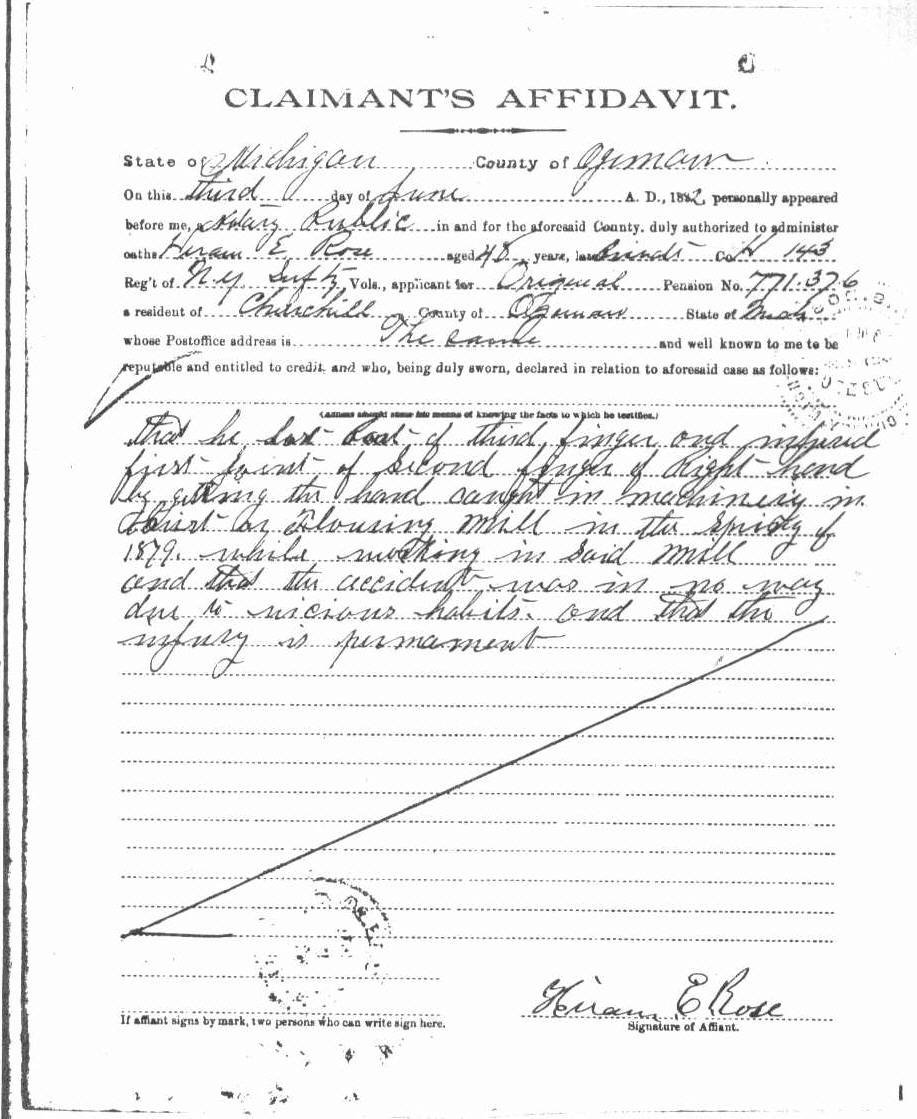 CLAIMANT'S AFFIDAVIT.
State of Michigan County of Ogemaw
On this third day of June A. D., 1892, personally appeared
before me, a Notary Public in and for the aforesaid County, duly authorized to administer
oaths Hiram E Rose aged 48 years, late Co H 143
Reg't of N Y Vols., applicant for Original Pension No. 771.376
a resident of Churchill County of Ogemaw State of Mich
whose Postoffice address is The same and well known to me to be
reputable and entitled to credit, and who, being duly sworn, declared in relation to aforesaid case as follows:
(Affiant should state his means of knowing the facts to which he testifies.)
that he lost part of third finger and injured
first joint of Second finger of Right hand
by getting the hand caught in machinery in
Grist or Flouring Mill in the Spring of
1879. while working in Said Mill
and that the accident was in no way
due to vicious habits. and that the
injury is permament
If affiant signs by mark, two persons who can write sign here.
Hiram E Rose
Signature of Affiant.